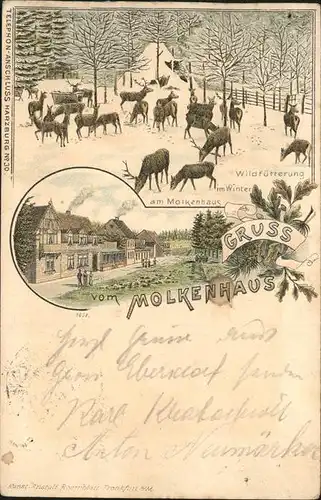 TELEPHON-ANSCHLUSS HARZBURG No 30
Wildfütterung
im Winter
am Molkenhaus
GRUSS
vom MOLKENHAUS
Herzl Grüße aus
senden
Karl
Anton Neumärker
Kunst-Anstalt Rosenblatt Frankfurt a/M.